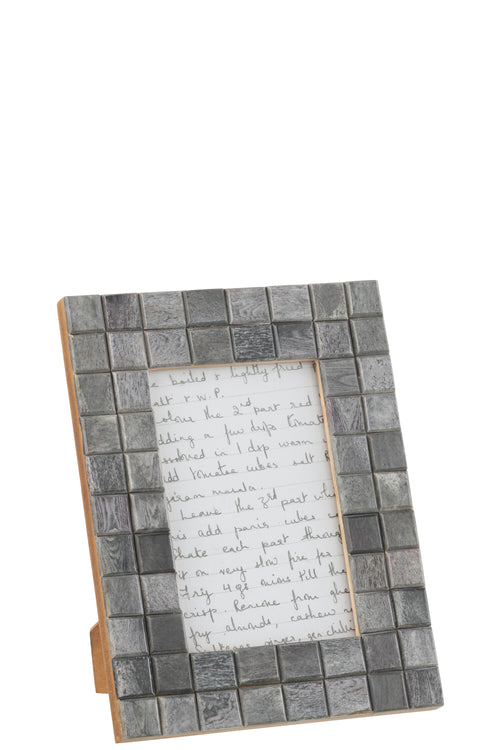 boiled & lightly fried
salt & W.P.
colour the 2nd part red
adding a few drps tomato
in 1 dsp warm
add tomatoe cubes salt
garam masala.
Leave the 3rd part whi
add panir cubes
Shake each part throug
on very slow fire for
Fry 4 qs onions till the
crisp. Remove from ghe
fry almonds, cashew n